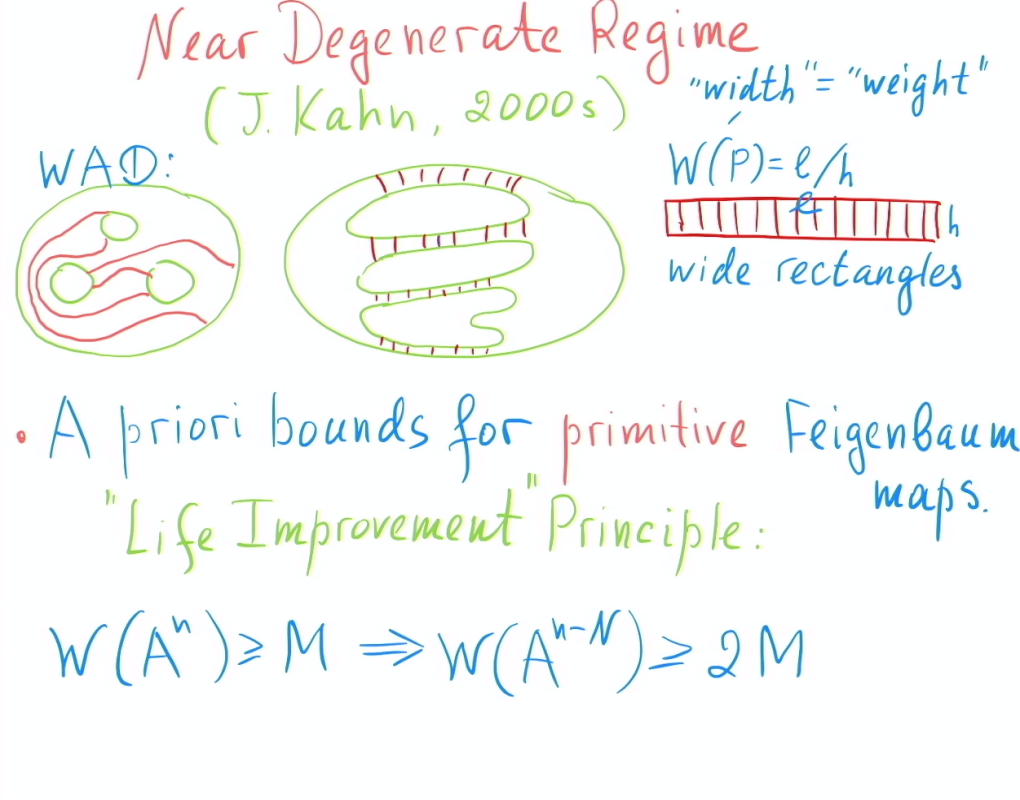 Near Degenerate Regime
(J. Kahn, 2000s)
"width" = "weight"
WAD:
W(P) = l/h
l
h
wide rectangles
• A priori bounds for primitive Feigenbaum
maps.
"Life Improvement" Principle:
W(Aⁿ) ⩾ M ⟹ W(Aⁿ⁻ᴺ) ⩾ 2M